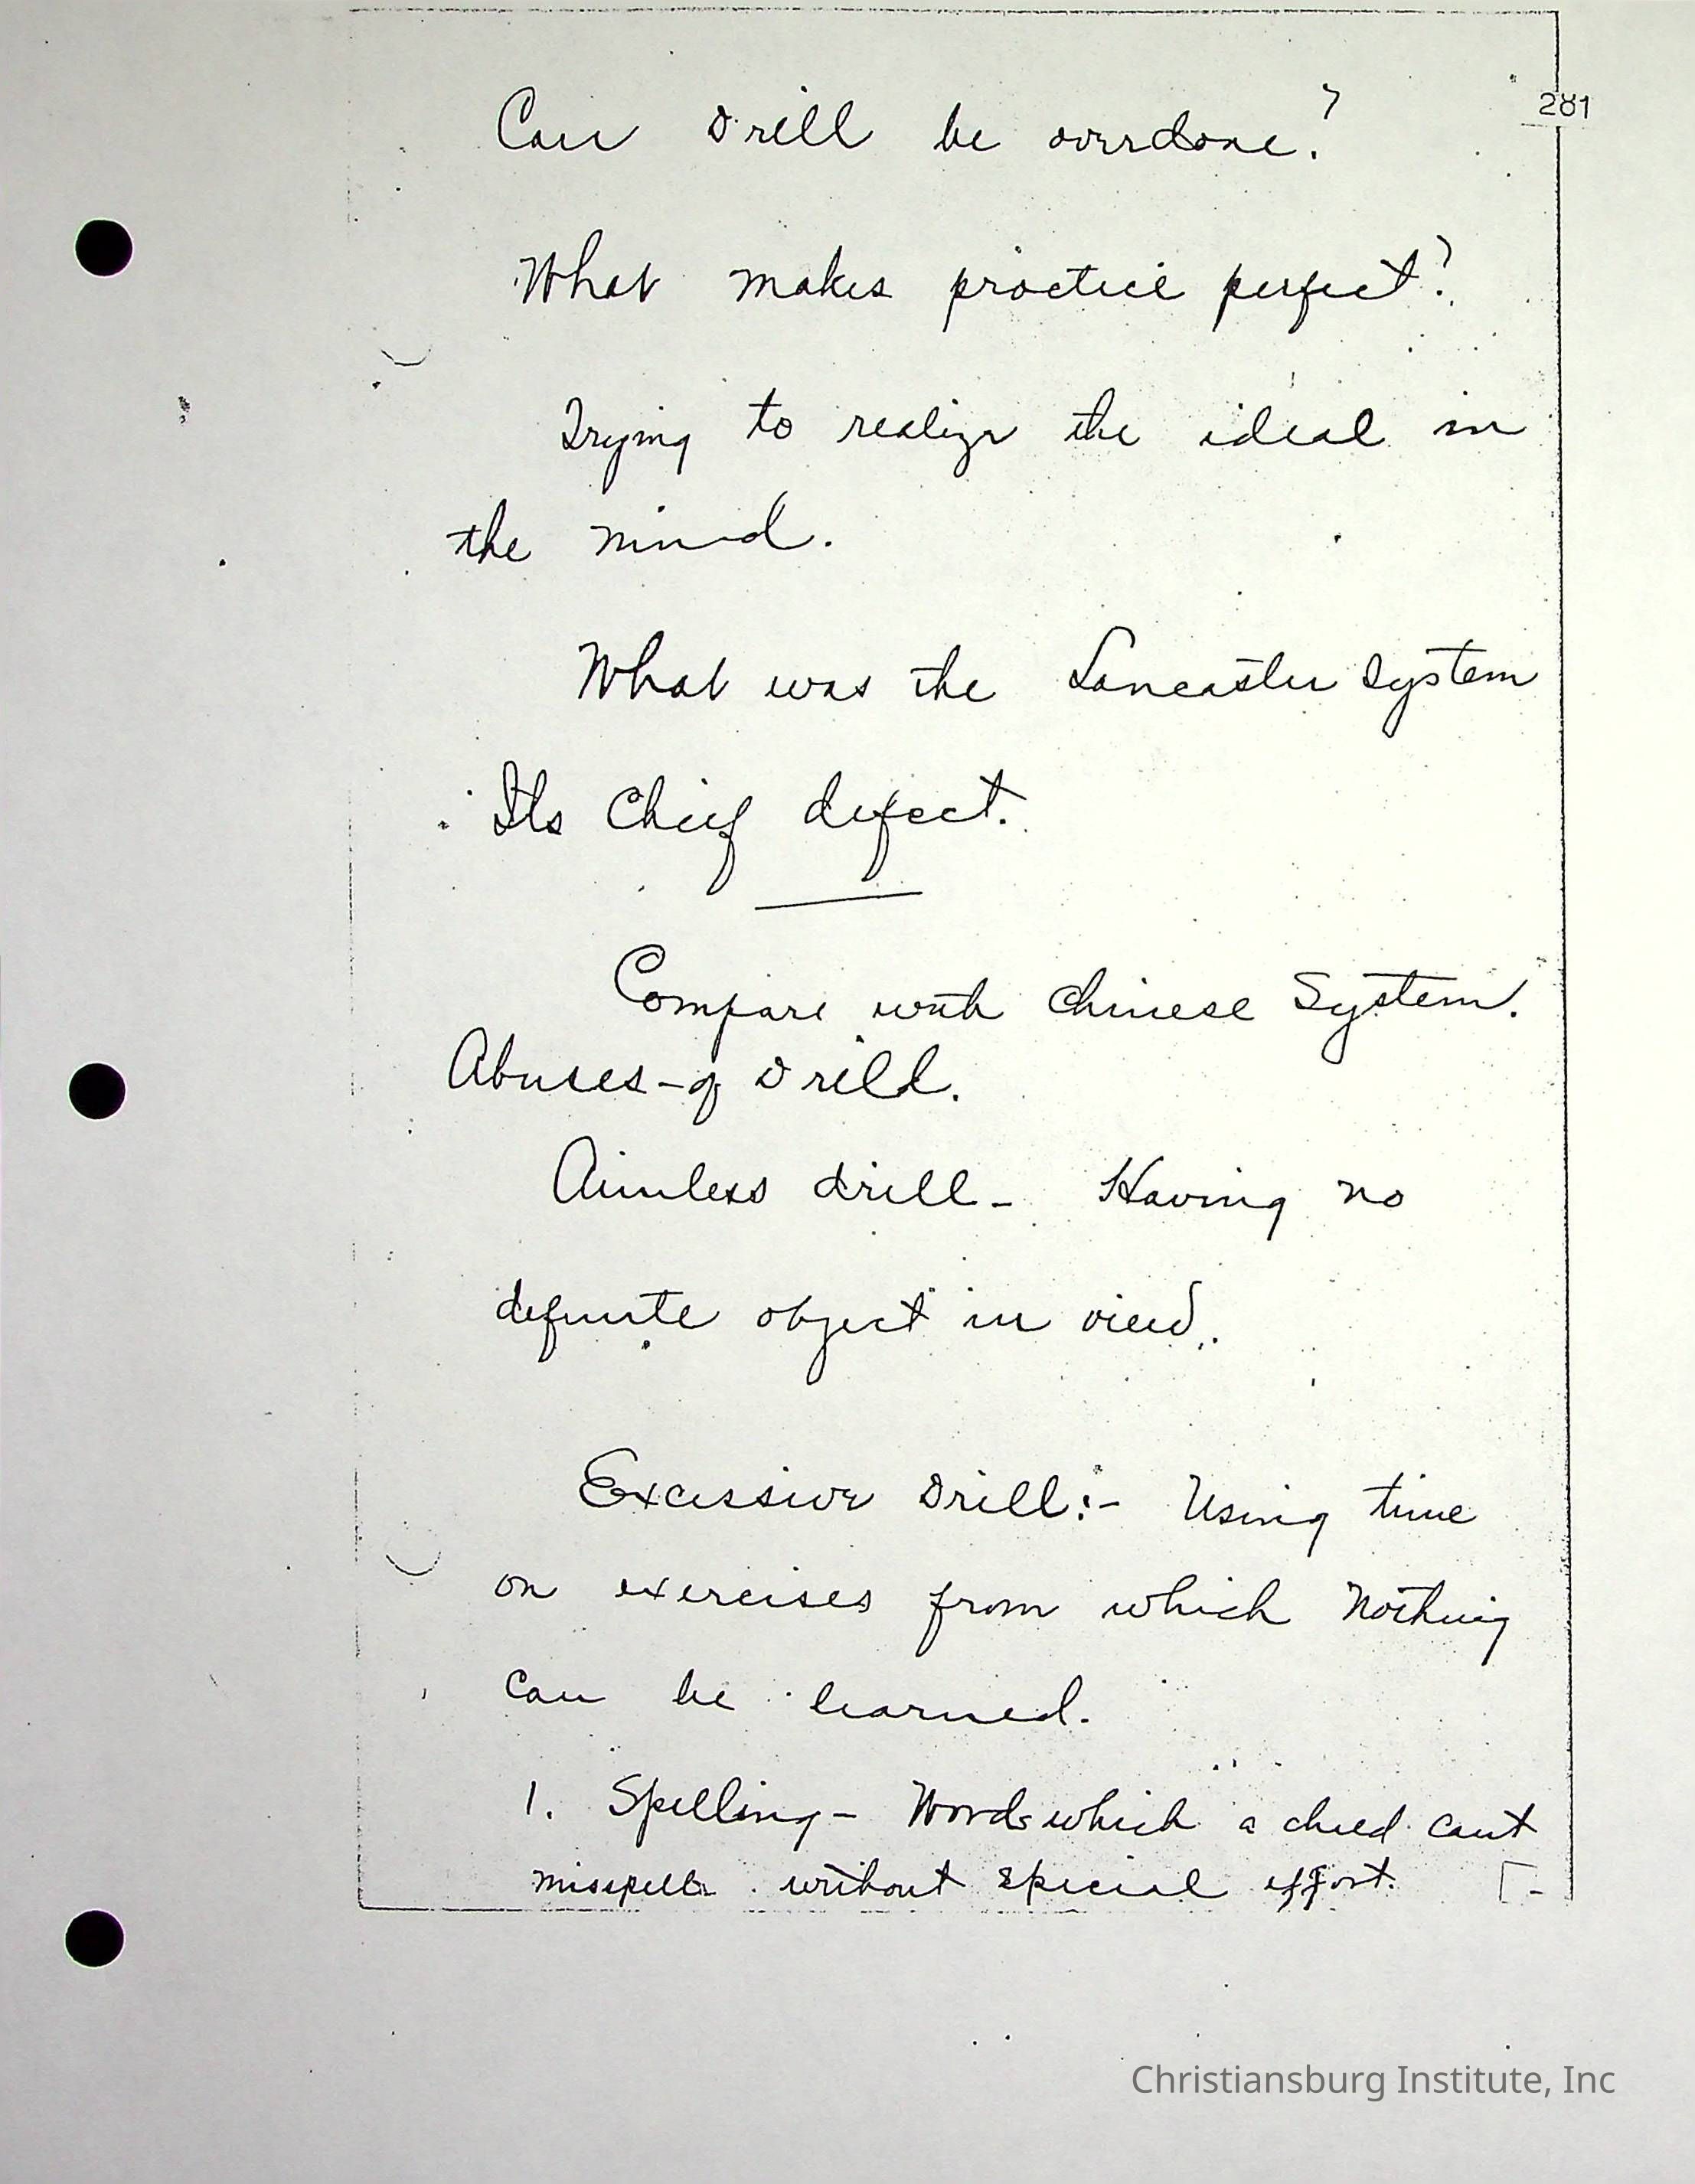 281
Can Drill be overdone?
What makes practice perfect?
Trying to realize the ideal in
the mind.
What was the Lancaster System
Its Chief defect.
Compare with Chinese System.
Abuses-of Drill.
Aimless drill- Having no
definite object in view.
Excessive Drill:- Using time
on exercises from which Nothing
can be learned.
1. Spelling- Words which a child cant
misspell without special effort.
Christiansburg Institute, Inc